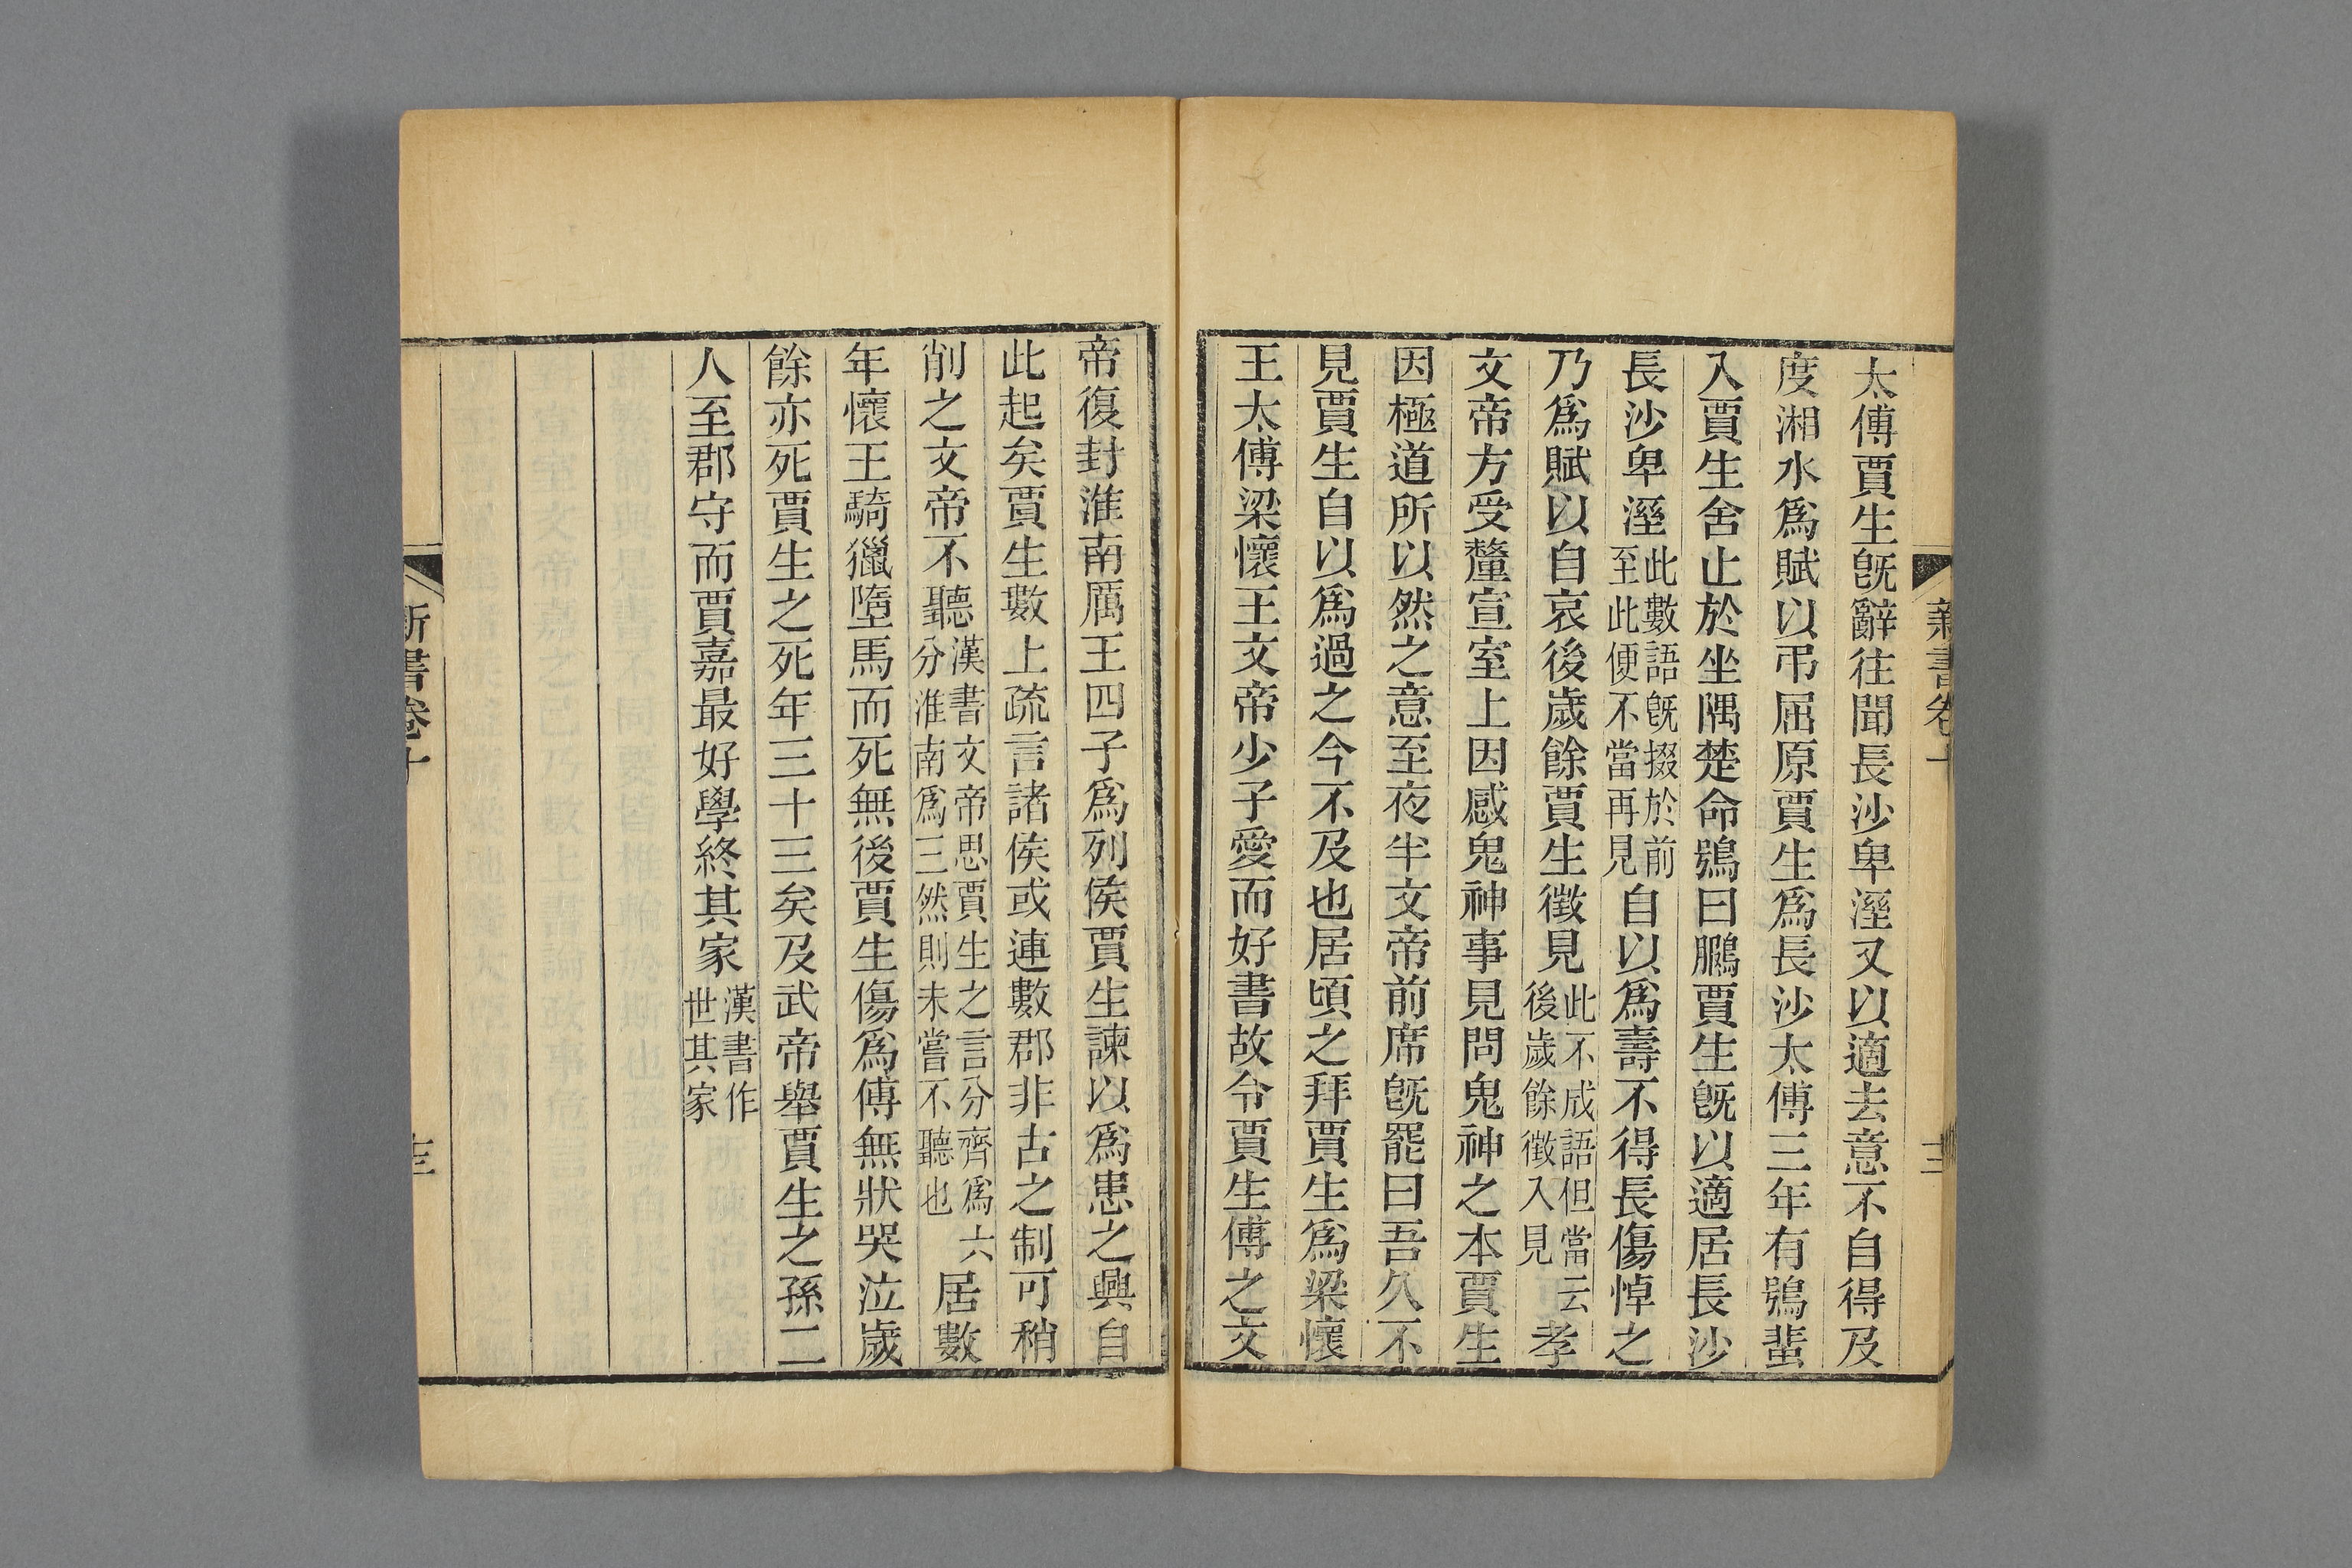 新書卷十
太傅賈生旣辭往聞長沙卑溼又以適去意不自得及
度湘水爲賦以弔屈原賈生爲長沙太傅三年有鴞蜚
入賈生舍止於坐隅楚命鴞曰鵩賈生旣以適居長沙
長沙卑溼此數語旣掇於前至此便不當再見自以爲壽不得長傷悼之
乃爲賦以自哀後歲餘賈生徵見此不成語但當云後歲餘徵入見孝
文帝方受釐宣室上因感鬼神事見問鬼神之本賈生
因極道所以然之意至夜半文帝前席旣罷曰吾久不
見賈生自以爲過之今不及也居頃之拜賈生爲梁懷
王太傅梁懷王文帝少子愛而好書故令賈生傅之文
帝復封淮南厲王四子爲列侯賈生諫以爲患之興自
此起矣賈生數上疏言諸侯或連數郡非古之制可稍
削之文帝不聽漢書文帝思賈生之言分齊爲六分淮南爲三然則未嘗不聽也居數
年懷王騎獵墮馬而死無後賈生傷爲傅無狀哭泣歲
餘亦死賈生之死年三十三矣及武帝舉賈生之孫二
人至郡守而賈嘉最好學終其家漢書作世其家
新書卷十